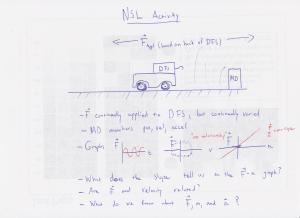 NSL Activity
F App (based on back of DFS)
DFS
MD
- F continually applied to DFS, but continually varied
- MD monitors pos, vel, accel
- Graphs F t F v F a
"no relationship"
- What does the slope tell us on the F-a graph?
- Are F and velocity related?
- What do we know about F, m, and a?